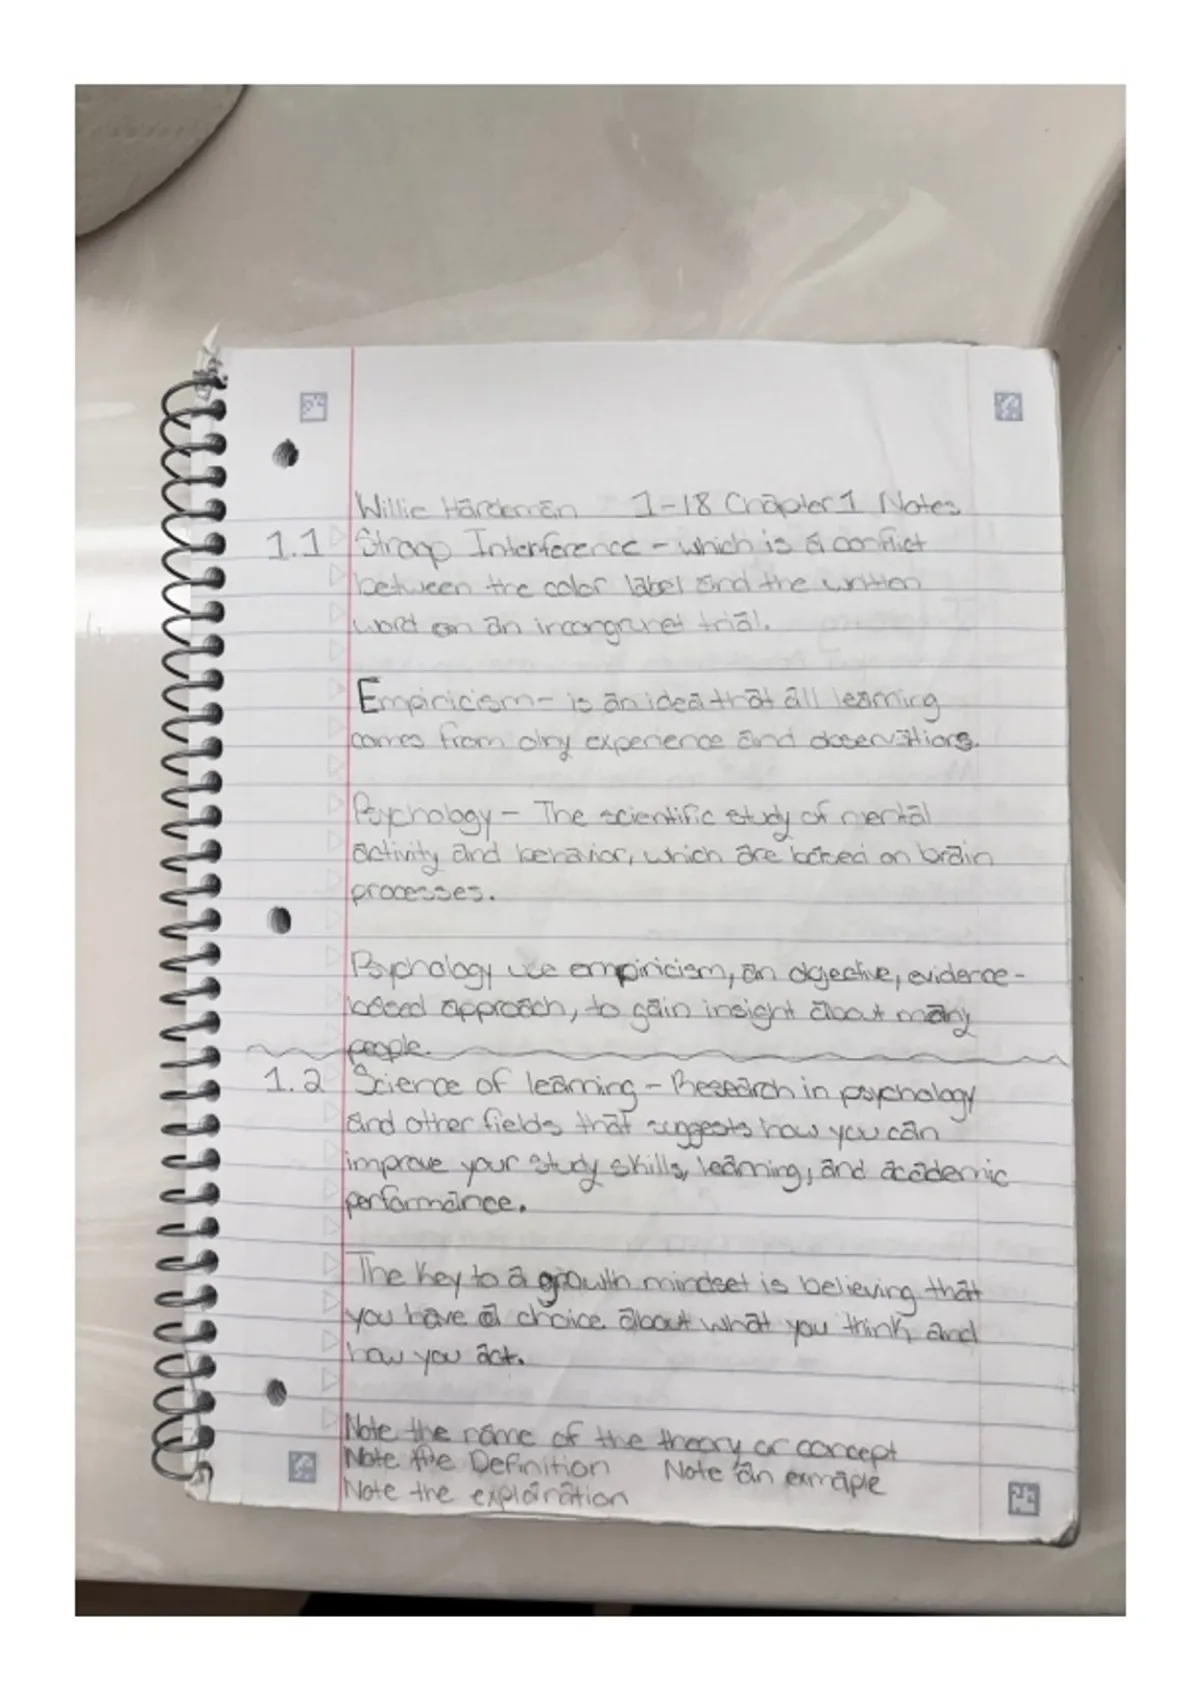 Willie Hardeman 1-18 Chapter 1 Notes
1.1 Stroop Interference - which is a conflict
between the color label and the written
word on an incongrunet trial.
Empiricism - is an idea that all learning
comes from olny experience and observations.
Psychology - The scientific study of mental
activity and behavior, which are based on brain
processes.
Psychology use empiricism, an objective, evidence-
based approach, to gain insight about many
people.
1.2 Science of learning - Research in psychology
and other fields that suggests how you can
improve your study skills, learning, and academic
performance.
The key to a growth mindset is believing that
you have a choice about what you think and
how you act.
Note the name of the theory or concept
Note the Definition Note an exmaple
Note the explanation